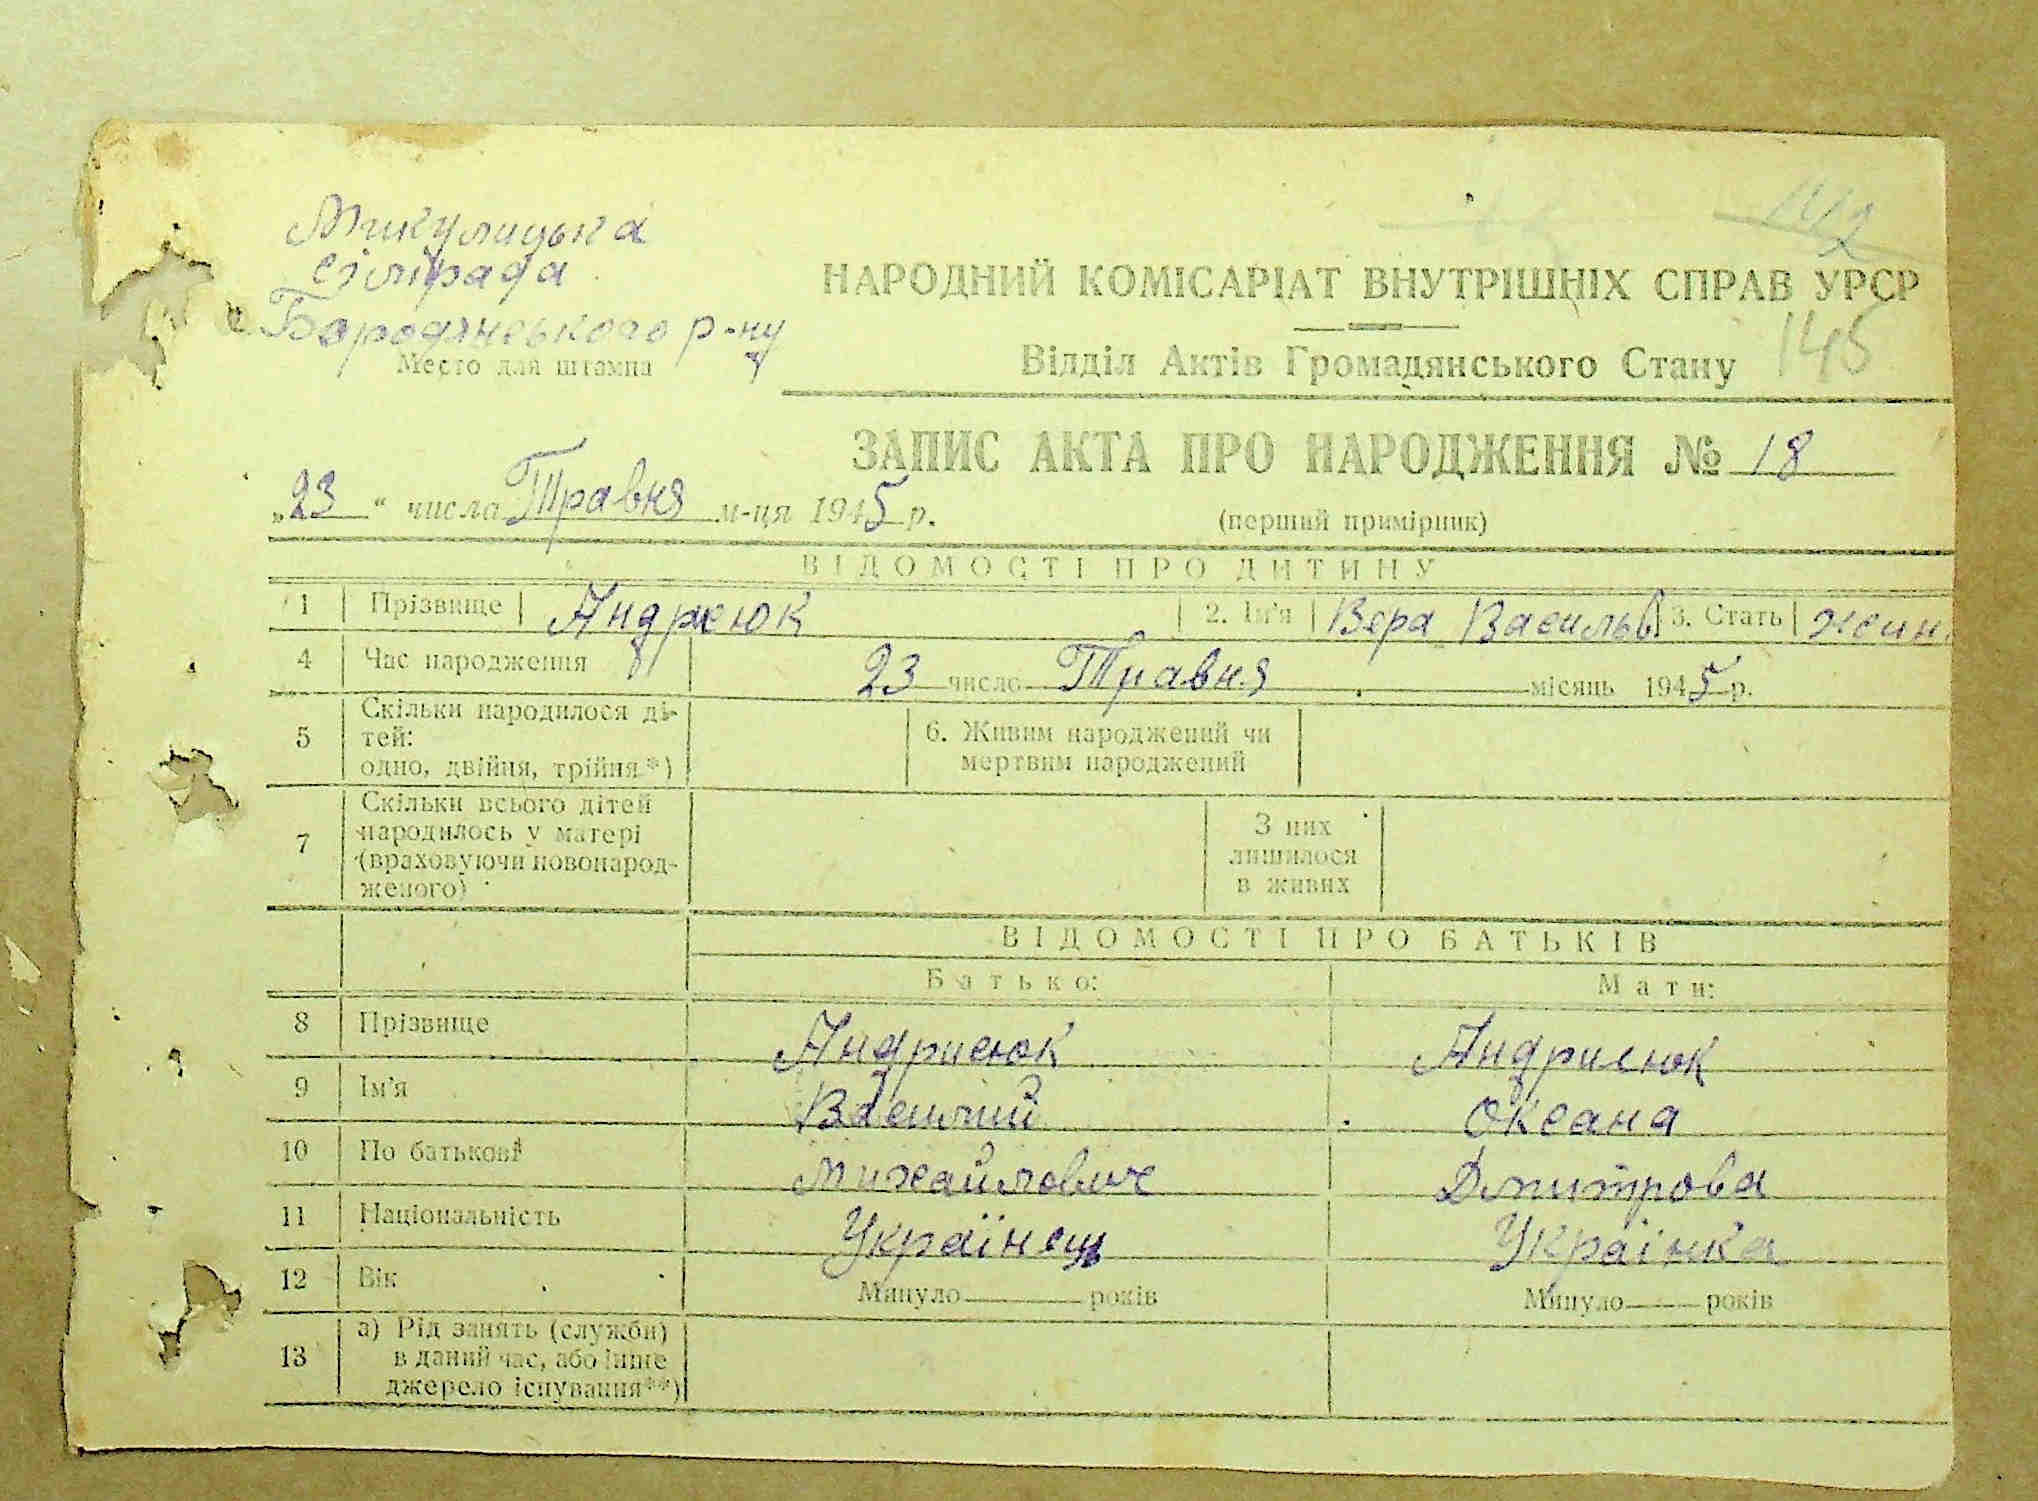 Микулицька
сілірада
Бородянського р-ну
Место для штампа
142
НАРОДНИЙ КОМІСАРІАТ ВНУТРІШНІХ СПРАВ УРСР
Відділ Актів Громадянського Стану
145
ЗАПИС АКТА ПРО НАРОДЖЕННЯ № 18
„23“ числа Травня м-ця 1945 р.
(перший примірник)
ВІДОМОСТІ ПРО ДИТИНУ
1 Прізвище Андрсюк 2. Ім'я Вера Васильв 3. Стать жин.
4 Час народження 23 число Травня місяць 1945 р.
5 Скільки народилося ді-
тей:
одно, двійня, трійня*)
6. Живим народжений чи
мертвим народжений
7 Скільки всього дітей
народилось у матері
(враховуючи новонарод-
женого)
З них
лишилося
в живих
ВІДОМОСТІ ПРО БАТЬКІВ
Батько: Мати:
8 Прізвище Андрисюк Андрисюк
9 Ім'я Василий Оксана
10 По батькові Михайлович Дмитрова
11 Національність Українець Українка
12 Вік Минуло років Минуло років
13 а) Рід занять (служби)
в даний час, або інше
джерело існування**)